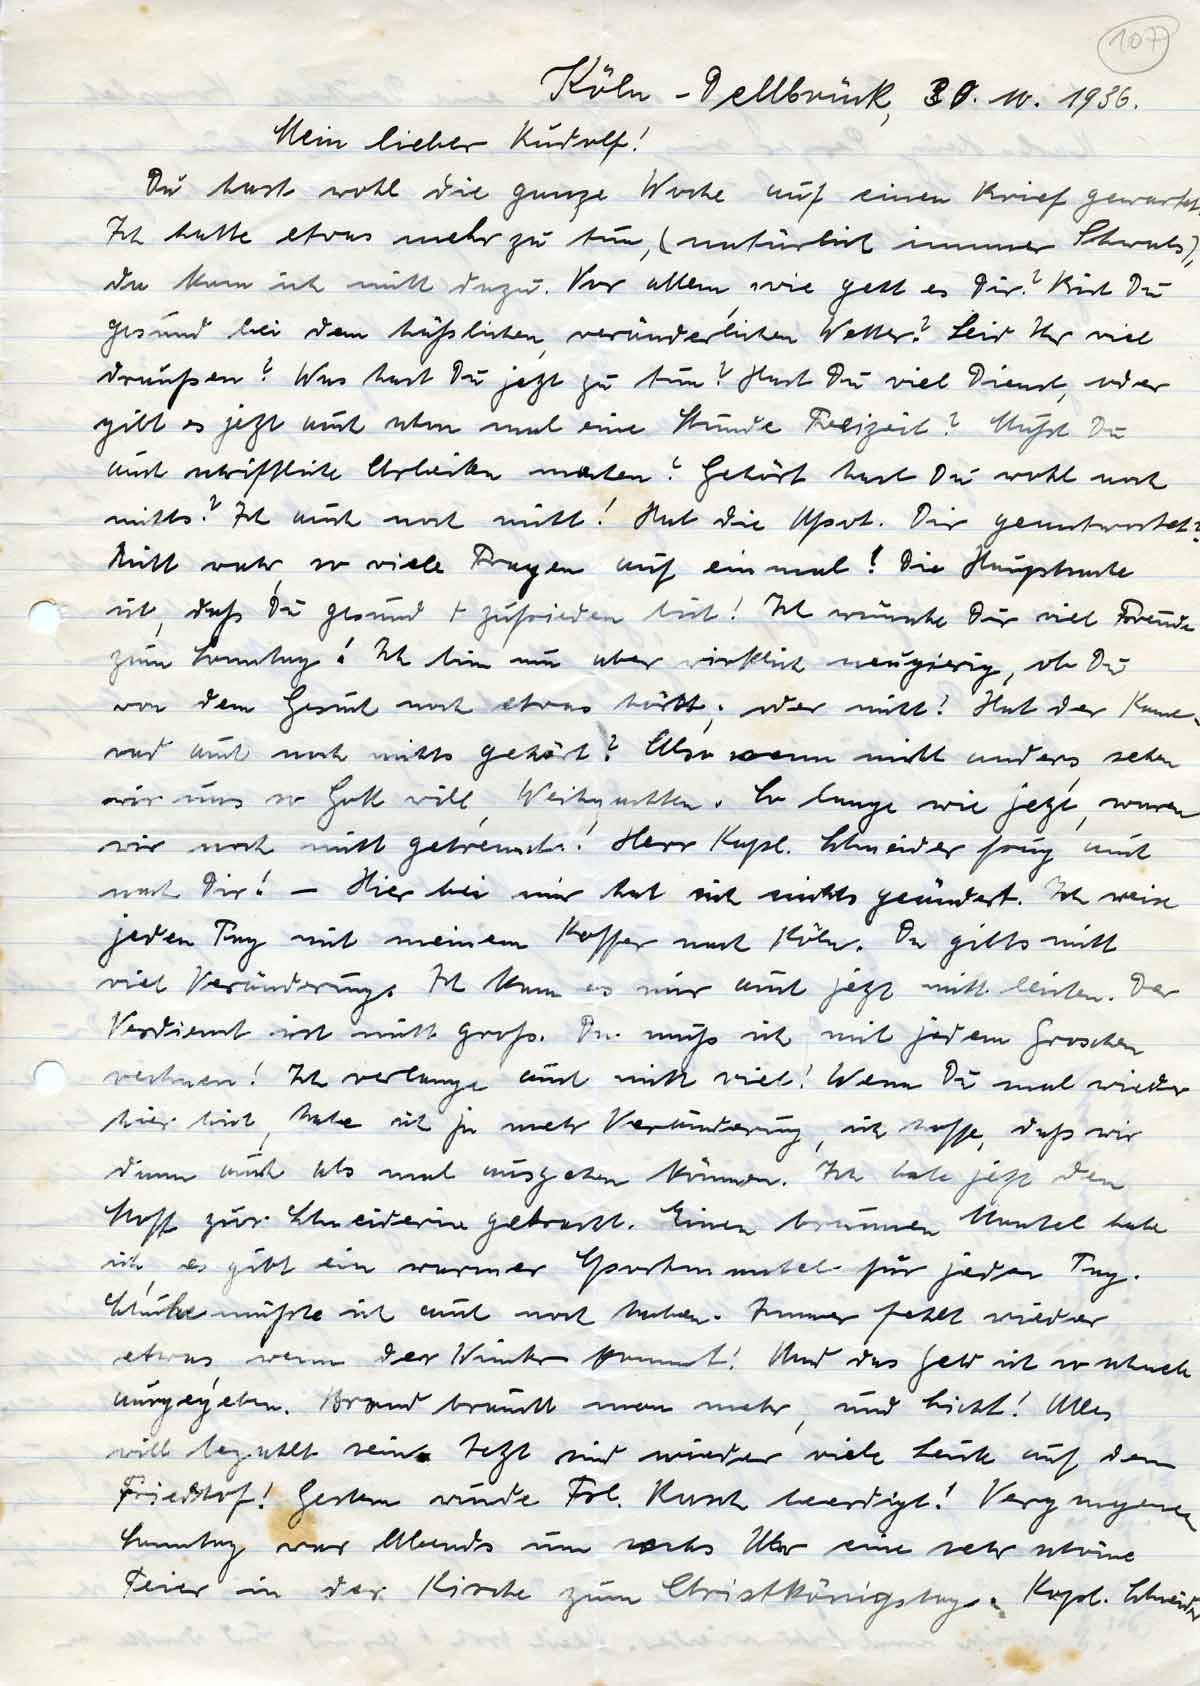 107
Köln-Dellbrück, 30. 10. 1936.
Mein lieber Rudolf!
Du hast wohl die ganze Woche auf einen Brief gewartet,
Ich hatte etwas mehr zu tun, (natürlich immer Schwatz),
da kam ich nicht dazu. Vor allem, wie geht es Dir? Bist Du
gesund bei dem häßlichen, veränderlichen Wetter? Seid Ihr viel
draußen? Was hast Du jetzt zu tun? Hast Du viel Dienst, oder
gibt es jetzt auch schon mal eine Stunde Freizeit? Mußt Du
auch schriftliche Arbeiten machen? Gehört hast Du wohl noch
nichts? Ich auch noch nicht! Hat die Dir geantwortet?
Nicht wahr, so viele Fragen auf einmal! Die Hauptsache
ist, daß Du gesund + zufrieden bist! Ich wünsche Dir viel Freude
zum Sonntag! Ich bin nun aber wirklich neugierig, ob Du
von dem Gesuch noch etwas hörst, oder nicht! Hat der Kame-
rad auch noch nichts gehört? Also wenn nicht anders, sehen
wir uns so Gott will, Weihnachten. So lange wie jetzt, waren
wir noch nicht getrennt! Herr Kapl. Schneider frug auch
nach Dir! – Hier bei mir hat sich nichts geändert. Ich reise
jeden Tag mit meinem Koffer nach Köln. Da gibts nicht
viel Veränderung. Ich kann es mir auch jetzt nicht leisten. Der
Verdienst ist nicht groß. Da muß ich mit jedem Groschen
rechnen! Ich verlange auch nicht viel! Wenn Du mal wieder
hier bist, habe ich ja mehr Veränderung, ich hoffe, daß wir
dann auch als mal ausgehen können. Ich habe jetzt den
Stoff zur Schneiderin gebracht. Einen braunen Mantel habe
ich, es gibt ein warmer Sportmantel für jeden Tag.
Schuhe müßte ich auch noch haben. Immer fehlt wieder
etwas, wenn der Winter kommt! Und das Geld ist so schnell
ausgegeben. Brand braucht man mehr, und Licht! Alles
will bezahlt sein. Jetzt sind wieder viele Leute auf dem
Friedhof! Gestern wurde Frl. Kusch beerdigt! Vergangenen
Sonntag war Abends um sechs Uhr eine sehr schöne
Feier in der Kirche zum Christkönigstag. Kapl. Schneider